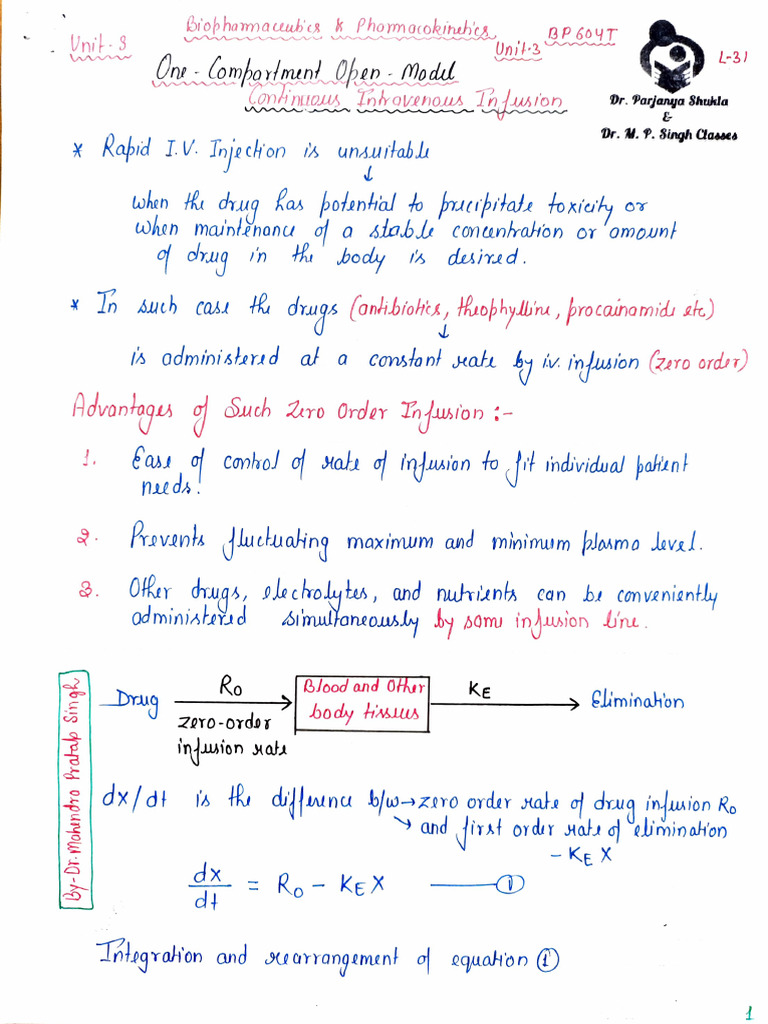 Biopharmaceutics & Pharmacokinetics BP604T
Unit-3 Unit-3 L-31
One-Compartment Open-Model
Continuous Intravenous Infusion
Dr. Parjanya Shukla
&
Dr. M. P. Singh Classes
* Rapid I.V. Injection is unsuitable
↓
when the drug has potential to precipitate toxicity or
when maintenance of a stable concentration or amount
of drug in the body is desired.
* In such case the drugs (antibiotics, theophylline, procainamide etc)
↓
is administered at a constant rate by i.v. infusion (zero order)
Advantages of Such Zero Order Infusion :-
1. Ease of control of rate of infusion to fit individual patient
needs.
2. Prevents fluctuating maximum and minimum plasma level.
3. Other drugs, electrolytes, and nutrients can be conveniently
administered simultaneously by same infusion line.
Drug R₀ → Blood and Other K_E → Elimination
zero-order body tissues
infusion rate
By-Dr. Mahendra Pratap Singh
dx/dt is the difference b/w → zero order rate of drug infusion R₀
↘ and first order rate of elimination
- K_E X
dx/dt = R₀ - K_E X —— ①
Integration and rearrangement of equation ①
1